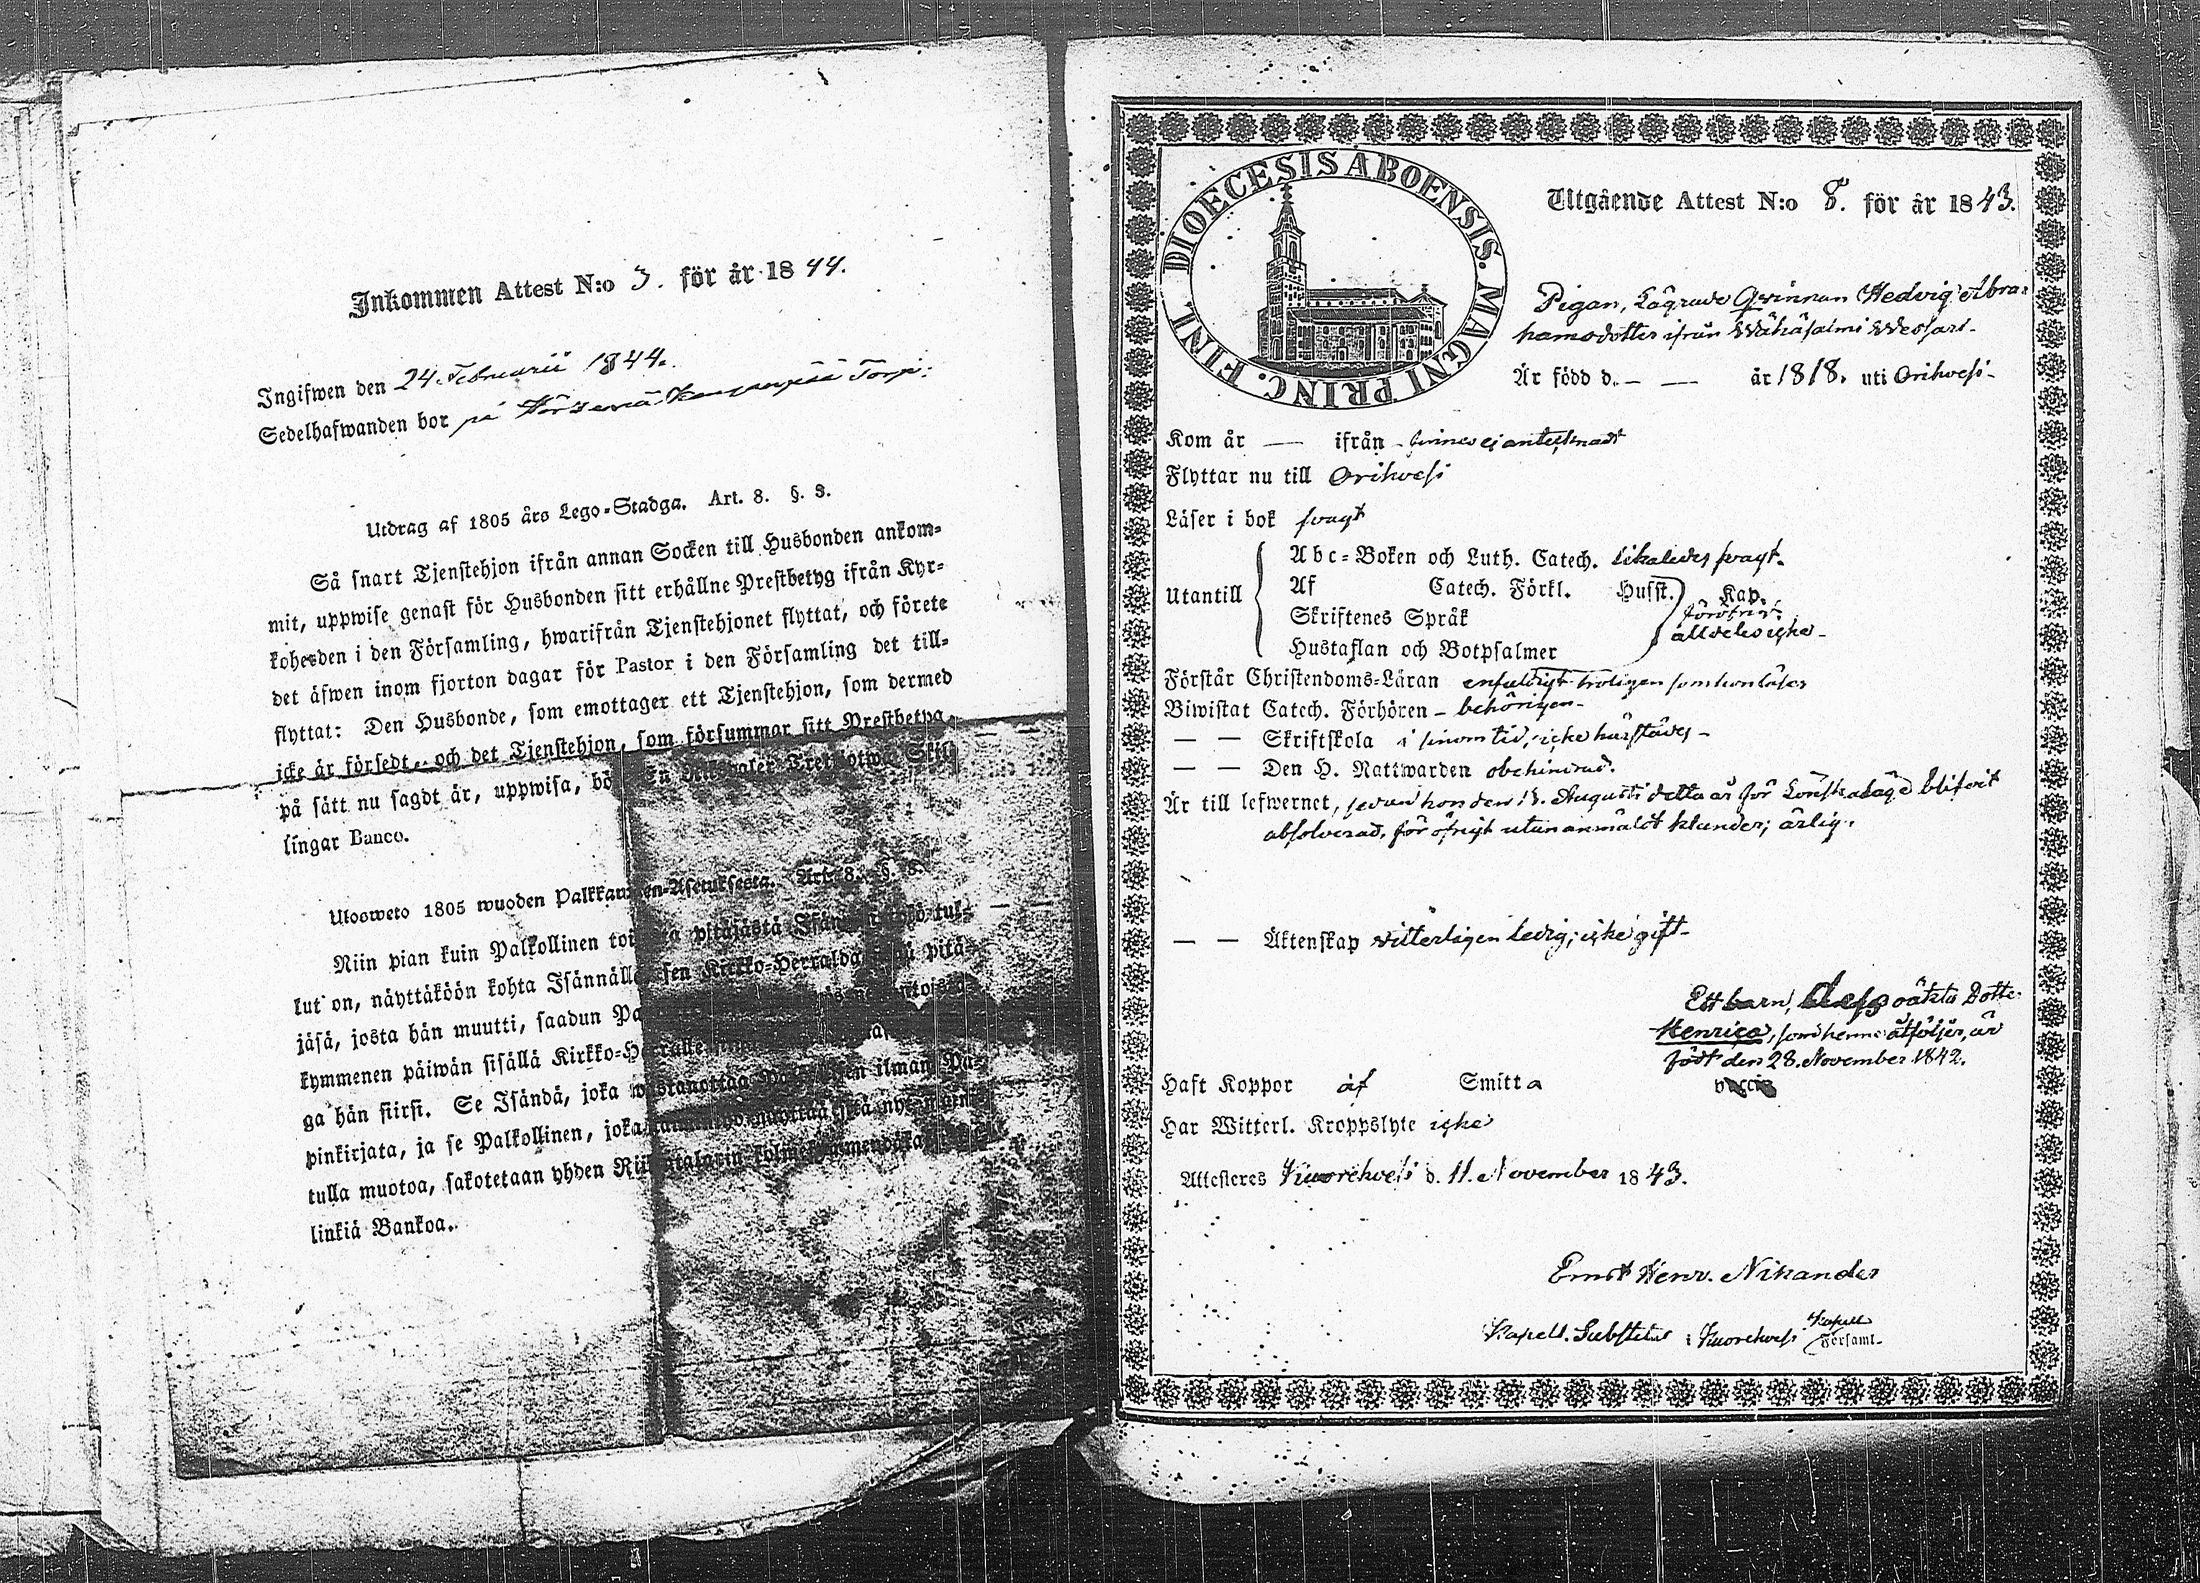 Inkommen Attest N:o 3. för år 1844.
Ingifwen den 24 Februarii 1844.
Sedelhafwanden bor på Torp:
Utdrag af 1805 års Lego-Stadga. Art. 8. §. 3.
Så snart Tjenstehjon ifrån annan Socken till Husbonden ankom-
mit, uppwise genast för Husbonden sitt erhållne Prestbetyg ifrån Kyr-
koherden i den Församling, hwarifrån Tjenstehjonet flyttat, och förete
det äfwen inom fjorton dagar för Pastor i den Församling det till-
flyttat: Den Husbonde, som emottager ett Tjenstehjon, som dermed
icke är försedt, och det Tjenstehjon, som försummar sitt Prestbetyg
på sätt nu sagdt är, uppwisa, bö Tretiotwå Skil-
lingar Banco.
Ulosweto 1805 wuoden Palkkaussen-Asetuksesta. Art. 8. §. 3.
Niin pian kuin Palkollinen pitäjästä tul-
lut on, näyttäköön kohta Isännällensen Kirkko-Herralda pitä-
jäsä, josta hän muutti, saadun
kymmenen päiwän sisällä Kirkko-Herralle
ga hän siirsi. Se Isändä, joka wastanottaa ilman Pa-
pinkirjata, ja se Palkollinen, joka
tulla muotoa, sakotetaan yhden Riikintalarin kolmekymmendäkaksi
linkiä Bankoa.
DIOECESIS ABOENSIS. MAGNI PRINC. FINL.
Utgående Attest N:o 8. för år 1843.
Pigan, Lägrade Qwinnan Hedvig Abra-
hamsdotter ifrån Wähäsalmi Wessari-
Är född d. — — år 1818. uti Orihwesi-
Kom år — ifrån finnes ej antecknadt
Flyttar nu till Orihwesi
Läser i bok swagt
Utantill
Abc-Boken och Luth. Catech. likaledes swagt.
Af Catech. Förkl. Husst. Kap.
Skriftenes Språk
Hustaflan och Botpsalmer
föröfrigt
alldeles icke-
Förstår Christendoms-Läran enfaldigt troligen som hon läser
Biwistat Catech. Förhören - behörigen-
— — Skriftskola i sinom tid, icke härstädes-
— — Den H. Nattwarden obehindrad.
Är till lefwernet, sedan hon den 13. Augusti detta år för Lönskaläge blifvit
absolverad, för öfrigt utan anmäldt klander; ärlig.
— — Äktenskap witterligen ledig; icke gift-
Ett barn, dess oäkta Dotter
Henrica, som henne åtföljer, är
född den 28. November 1842.
Haft Koppor af Smitta
Har Witterl. Kroppslyte icke
Attesteres Kuorehwesi d. 11. November 1843.
Ernst Henr. Nikander
Kapell. Substitut i Kuorehwesi Kapell
Församl.